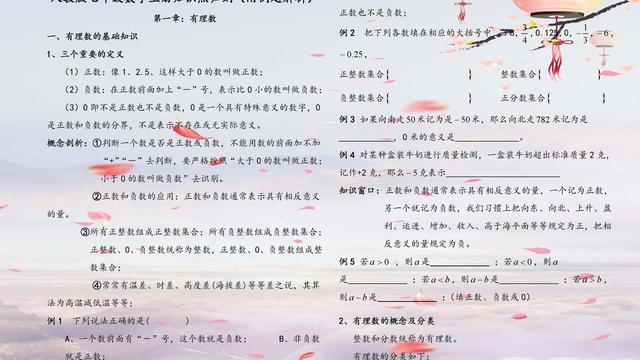 第一章：有理数
一、有理数的基础知识
1、三个重要的定义
（1）正数：像 1、2.5、这样大于 0 的数叫做正数；
（2）负数：在正数前面加上“－”号，表示比 0 小的数叫做负数；
（3）0 即不是正数也不是负数，0 是一个具有特殊意义的数字，0
是正数和负数的分界，不是表示不存在或无实际意义。
概念剖析：①判断一个数是否是正数或负数，不能用数的前面加不加
“+”“－”去判断，要严格按照“大于 0 的数叫做正数；
小于 0 的数叫做负数”去识别。
②正数和负数的应用：正数和负数通常表示具有相反意义
的量。
③所有正整数组成正整数集合；所有负整数组成负整数集合；
正整数、0、负整数统称为整数，正整数、0、负整数组成整
数集合；
④常常有温差、时差、高度差(海拔差)等等差之说，其算
法为高温减低温等等；
例 1 下列说法正确的是( )
A、一个数前面有“－”号，这个数就是负数； A、非负数
就是正数；
正数也不是负数；
例 2 把下列各数填在相应的大括号中 8，3/4，0.125，0，-6，
-0.25，
正整数集合{ } 整数集合{ }
负整数集合{ } 正分数集合{ }
例 3 如果向南走50米记为是－50米，那么向北走782米记为是
____________，0 米的意义是______________。
例 4 对某种盒装牛奶进行质量检测，一盒装牛奶超出标准质量 2 克，
记作+2 克，那么－5 克表示____________________
知识窗口：正数和负数通常表示具有相反意义的量，一个记为正数，
另一个就记为负数，我们习惯上把向东、向北、上升、盈
利、运进、增加、收入、高于海平面等等规定为正，把相
反意义的量规定为负。
例 5 若 a>0，则 a 是_____________；若 a<0，则 a
是_____________；若 a<b，则 a－b 是_____________；若
a>b，则 a－b 是_____________；（填正数、负数或 0）
2、有理数的概念及分类
整数和分数统称为有理数。
有理数的分类如下：